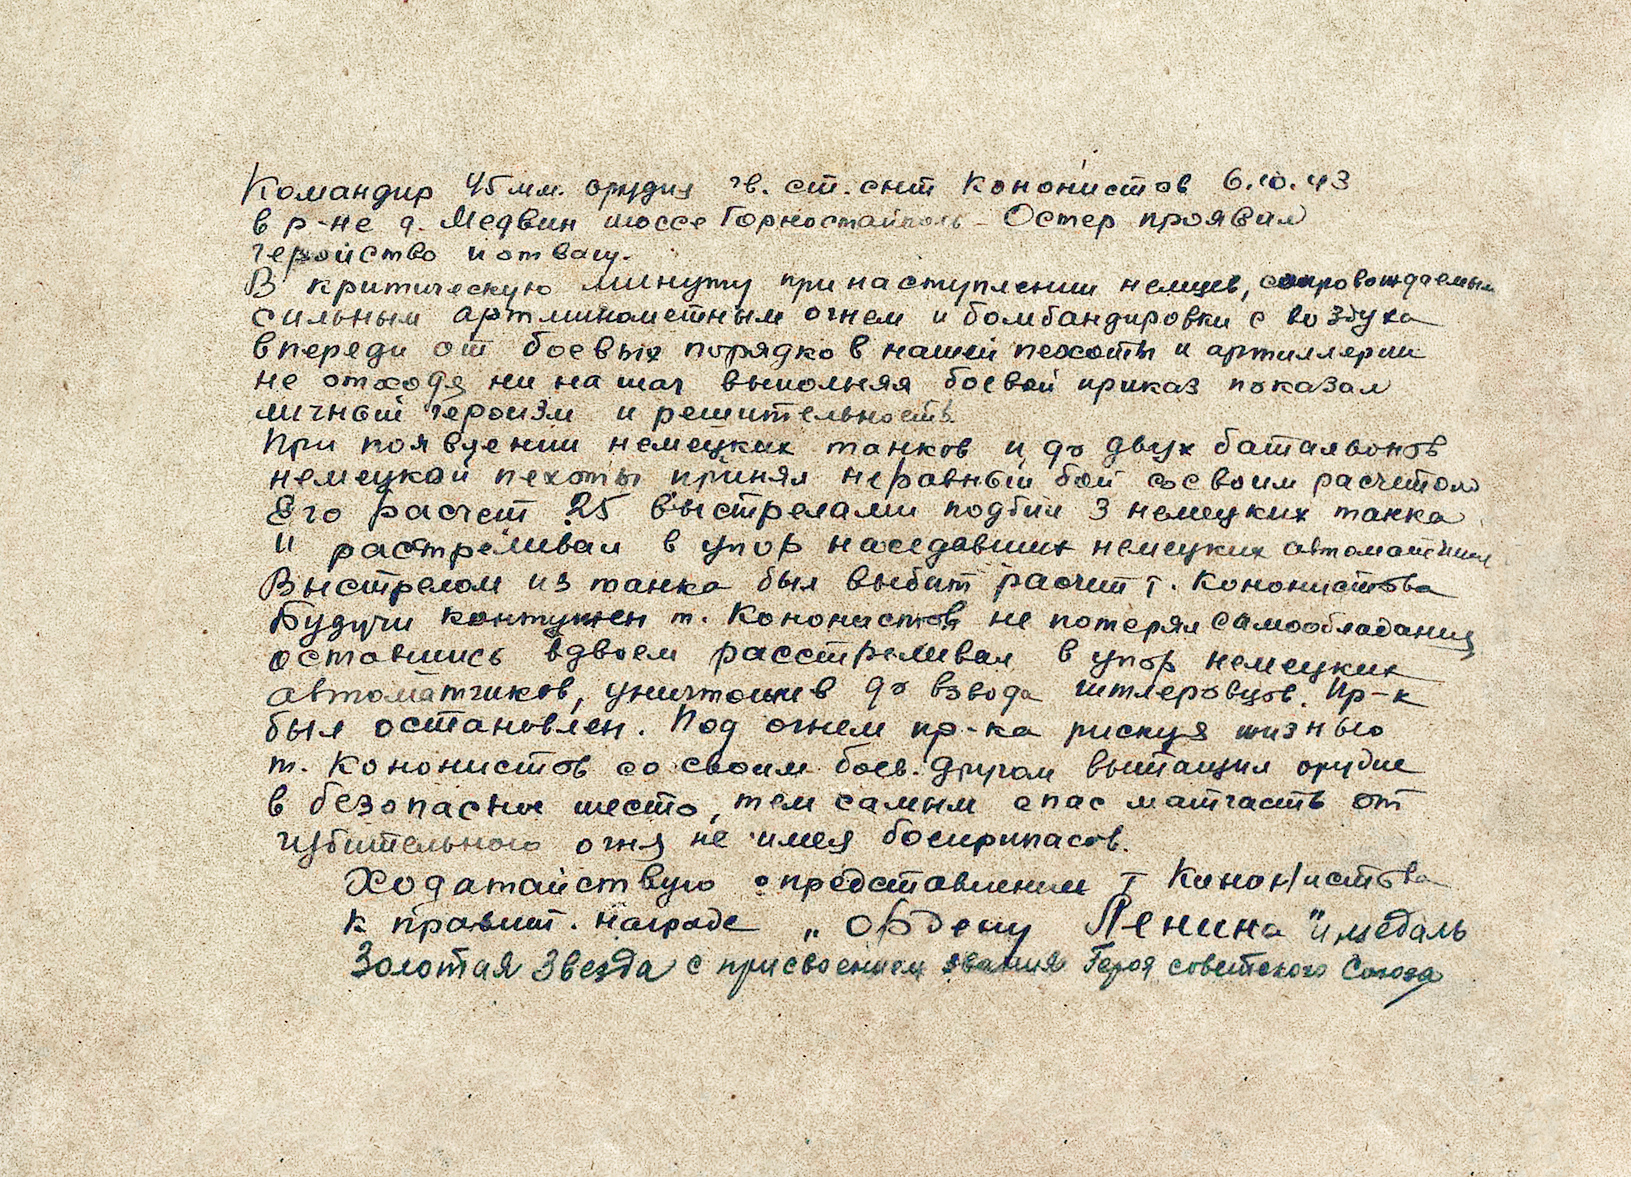 Командир 45 мм. орудия гв. ст. снт Кононистов 6.10.43
в р-не д. Медвин шоссе Горностайполь - Остер проявил
геройство и отвагу.
В критическую минуту при наступлении немцев, сопровождаемым
сильным артминометным огнем и бомбандировки с воздуха
впереди от боевых порядков нашей пехоты и артиллерии
не отходя ни на шаг выполняя боевой приказ показал
личный героизм и решительность.
При появлении немецких танков и до двух баталвонов
немецкой пехоты принял неравный бой со своим расчетом
Его расчет 25 выстрелами подбил 3 немецких танка
и расстреливал в упор наседавших немецких автоматчиков
Выстрелом из танка был выбит расчит т. Кононистова
Будучи контужен т. Кононистов не потерял самообладания,
оставшись вдвоем расстреливал в упор немецких
автоматчиков, уничтожив до взвода гитлеровцов. Пр-к
был остановлен. Под огнем пр-ка рискуя жизнью
т. Кононистов со своим боев. другом вытащил орудие
в безопасное место, тем самым спас матчасть от
губительного огня не имея боеприпасов.
Ходатайствую о представлении т Кононистова
к правит. награде „Ордену Ленина" и медаль
Золотая Звезда с присвоением звания Героя советского Союза